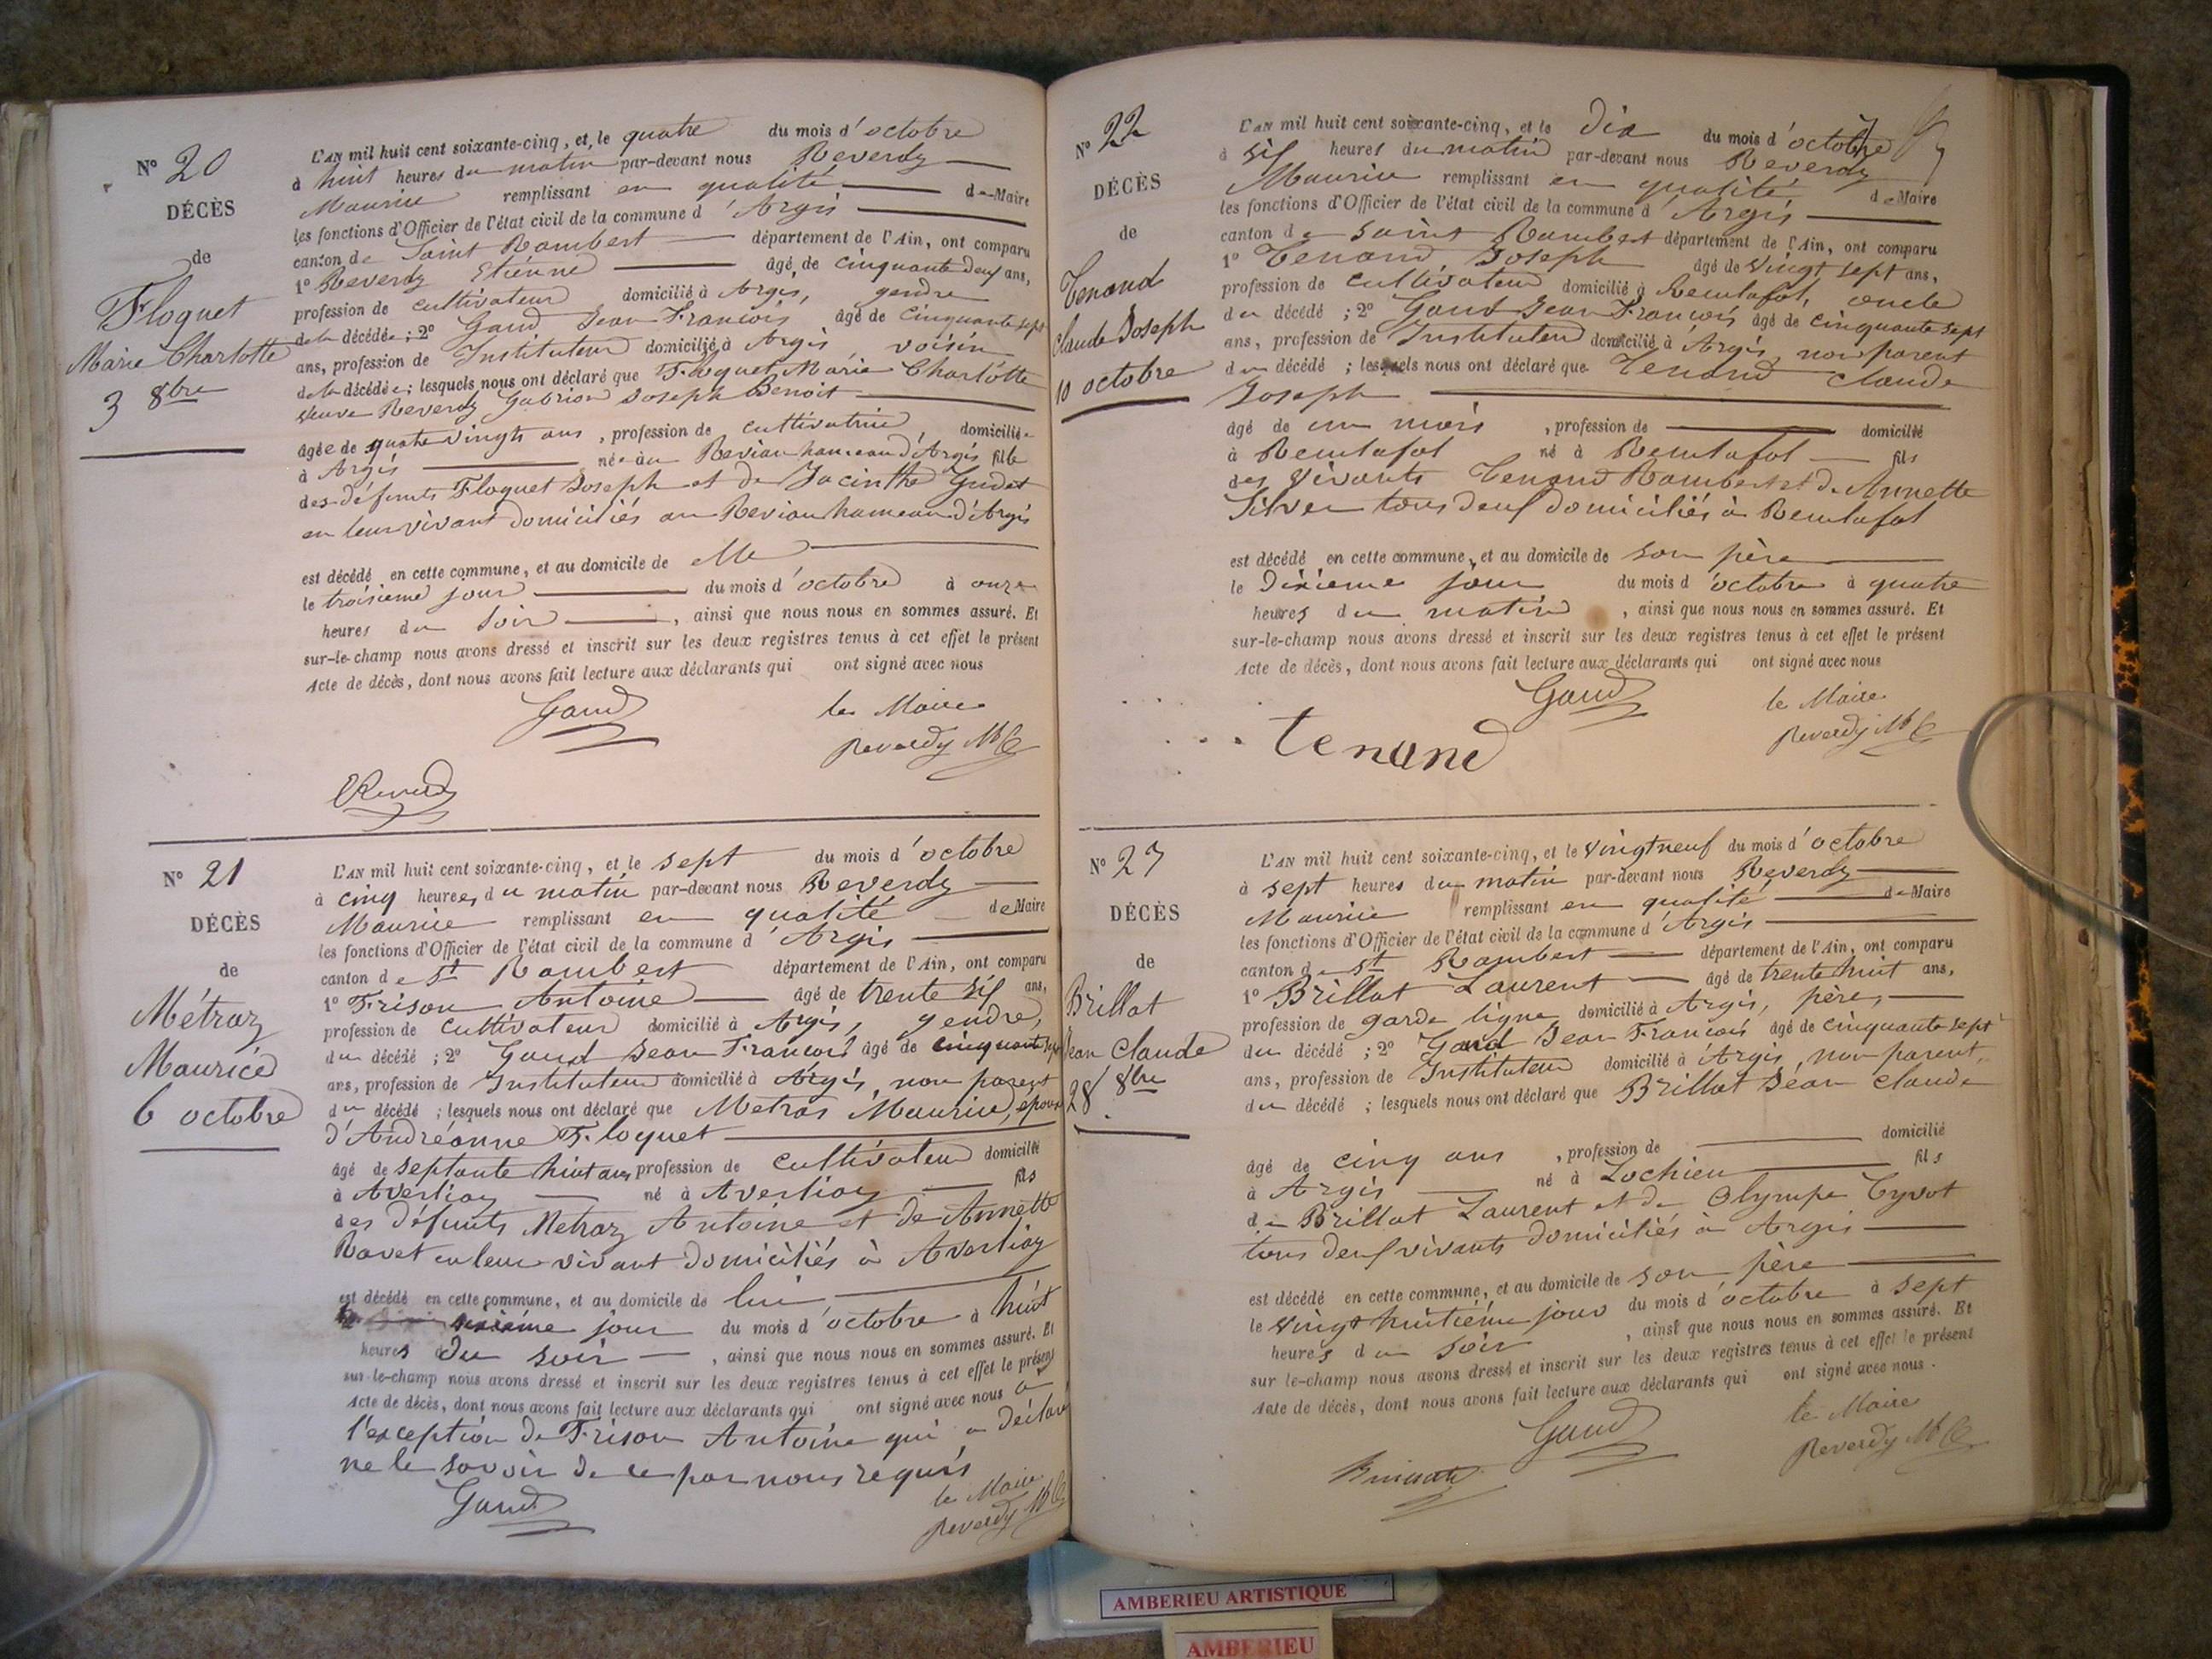 N° 20
DÉCÈS
de
Floquet
Marie Charlotte
3 8bre
L'AN mil huit cent soixante-cinq, et, le quatre du mois d'octobre
à huit heures du matin par-devant nous Reverdy
Maurice remplissant en qualité de Maire
les fonctions d'Officier de l'état civil de la commune d'Argis
canton de Saint Rambert département de l'Ain, ont comparu
1° Reverdy Etienne âgé de cinquante deux ans,
profession de cultivateur domicilié à Argis, gendre
de la décédée; 2° Gaud Jean François âgé de cinquante sept
ans, profession de Instituteur domicilié à Argis voisin
de la décédée; lesquels nous ont déclaré que Floquet Marie Charlotte
veuve Reverdy Joseph Benoit
âgée de quatre vingts ans, profession de cultivatrice, domiciliée
à Argis née au Revian hameau d'Argis fille
des défunts Floquet Joseph et de Jacinthe Gudet
en leur vivant domiciliés au Revian hameau d'Argis
est décédé en cette commune, et au domicile de elle
le troisième jour du mois d'octobre à onze
heures du soir, ainsi que nous nous en sommes assuré. Et
sur-le-champ nous avons dressé et inscrit sur les deux registres tenus à cet effet le présent
Acte de décès, dont nous avons fait lecture aux déclarants qui ont signé avec nous
Gaud le Maire
Reverdy
N° 21
DÉCÈS
de
Métraz
Maurice
6 octobre
L'AN mil huit cent soixante-cinq, et le sept du mois d'octobre
à cinq heures du matin par-devant nous Reverdy
Maurice remplissant en qualité de Maire
les fonctions d'Officier de l'état civil de la commune d'Argis
canton de St Rambert département de l'Ain, ont comparu
1° Frison Antoine âgé de trente six ans,
profession de cultivateur domicilié à Argis, gendre,
du décédé; 2° Gaud Jean François âgé de cinquante sept
ans, profession de Instituteur domicilié à Argis, non parent
du décédé; lesquels nous ont déclaré que Metras Maurice, époux
d'Andréanne Floquet
âgé de septante huit ans profession de cultivateur domicilié
à Averliaz né à Averliaz fils
des défunts Metraz Antoine et de Annette
Ravet en leur vivant domiciliés à Averliaz
est décédé en cette commune, et au domicile de lui
sixième jour du mois d'octobre à huit
heures du soir, ainsi que nous nous en sommes assuré. Et
sur-le-champ nous avons dressé et inscrit sur les deux registres tenus à cet effet le présent
Acte de décès, dont nous avons fait lecture aux déclarants qui ont signé avec nous à
l'exception de Frison Antoine qui a déclaré
ne le savoir de ce par nous requis
Gaud le Maire
Reverdy
N° 22
DÉCÈS
de
Tenand
Claude Joseph
10 octobre
L'AN mil huit cent soixante-cinq, et le dix du mois d'octobre
à six heures du matin par-devant nous Reverdy
Maurice remplissant en qualité de Maire
les fonctions d'Officier de l'état civil de la commune d'Argis
canton de Saint Rambert département de l'Ain, ont comparu
1° Tenand Joseph âgé de vingt sept ans,
profession de cultivateur domicilié à Reculafol, oncle
du décédé; 2° Gaud Jean François âgé de cinquante sept
ans, profession de Instituteur domicilié à Argis, non parent
du décédé; lesquels nous ont déclaré que Tenand Claude
Joseph
âgé de un mois, profession de domicilié
à Reculafol né à Reculafol fils
des vivants Tenand Rambert et de Annette
Silven tous deux domiciliés à Reculafol
est décédé en cette commune, et au domicile de son père
le dixieme jour du mois d'octobre à quatre
heures du matin, ainsi que nous nous en sommes assuré. Et
sur-le-champ nous avons dressé et inscrit sur les deux registres tenus à cet effet le présent
Acte de décès, dont nous avons fait lecture aux déclarants qui ont signé avec nous
Gaud le Maire
Tenand Reverdy
N° 23
DÉCÈS
de
Brillat
Jean Claude
28 8bre
L'AN mil huit cent soixante-cinq, et le vingt neuf du mois d'octobre
à sept heures du matin par-devant nous Reverdy
Maurice remplissant en qualité de Maire
les fonctions d'Officier de l'état civil de la commune d'Argis
canton de St Rambert département de l'Ain, ont comparu
1° Brillat Laurent âgé de trente huit ans,
profession de garde ligne domicilié à Argis, père,
du décédé; 2° Gaud Jean François âgé de cinquante sept
ans, profession de Instituteur domicilié à Argis, non parent
du décédé; lesquels nous ont déclaré que Brillat Jean Claude
âgé de cinq ans, profession de domicilié
à Argis né à Lochieu fils
de Brillat Laurent et de Olympe Tyvot
tous deux vivants domiciliés à Argis
est décédé en cette commune, et au domicile de son père
le vingt huitième jour du mois d'octobre à sept
heures du soir, ainsi que nous nous en sommes assuré. Et
sur le-champ nous avons dressé et inscrit sur les deux registres tenus à cet effet le présent
Acte de décès, dont nous avons fait lecture aux déclarants qui ont signé avec nous.
Gaud le Maire
Reverdy
AMBERIEU ARTISTIQUE
AMBERIEU